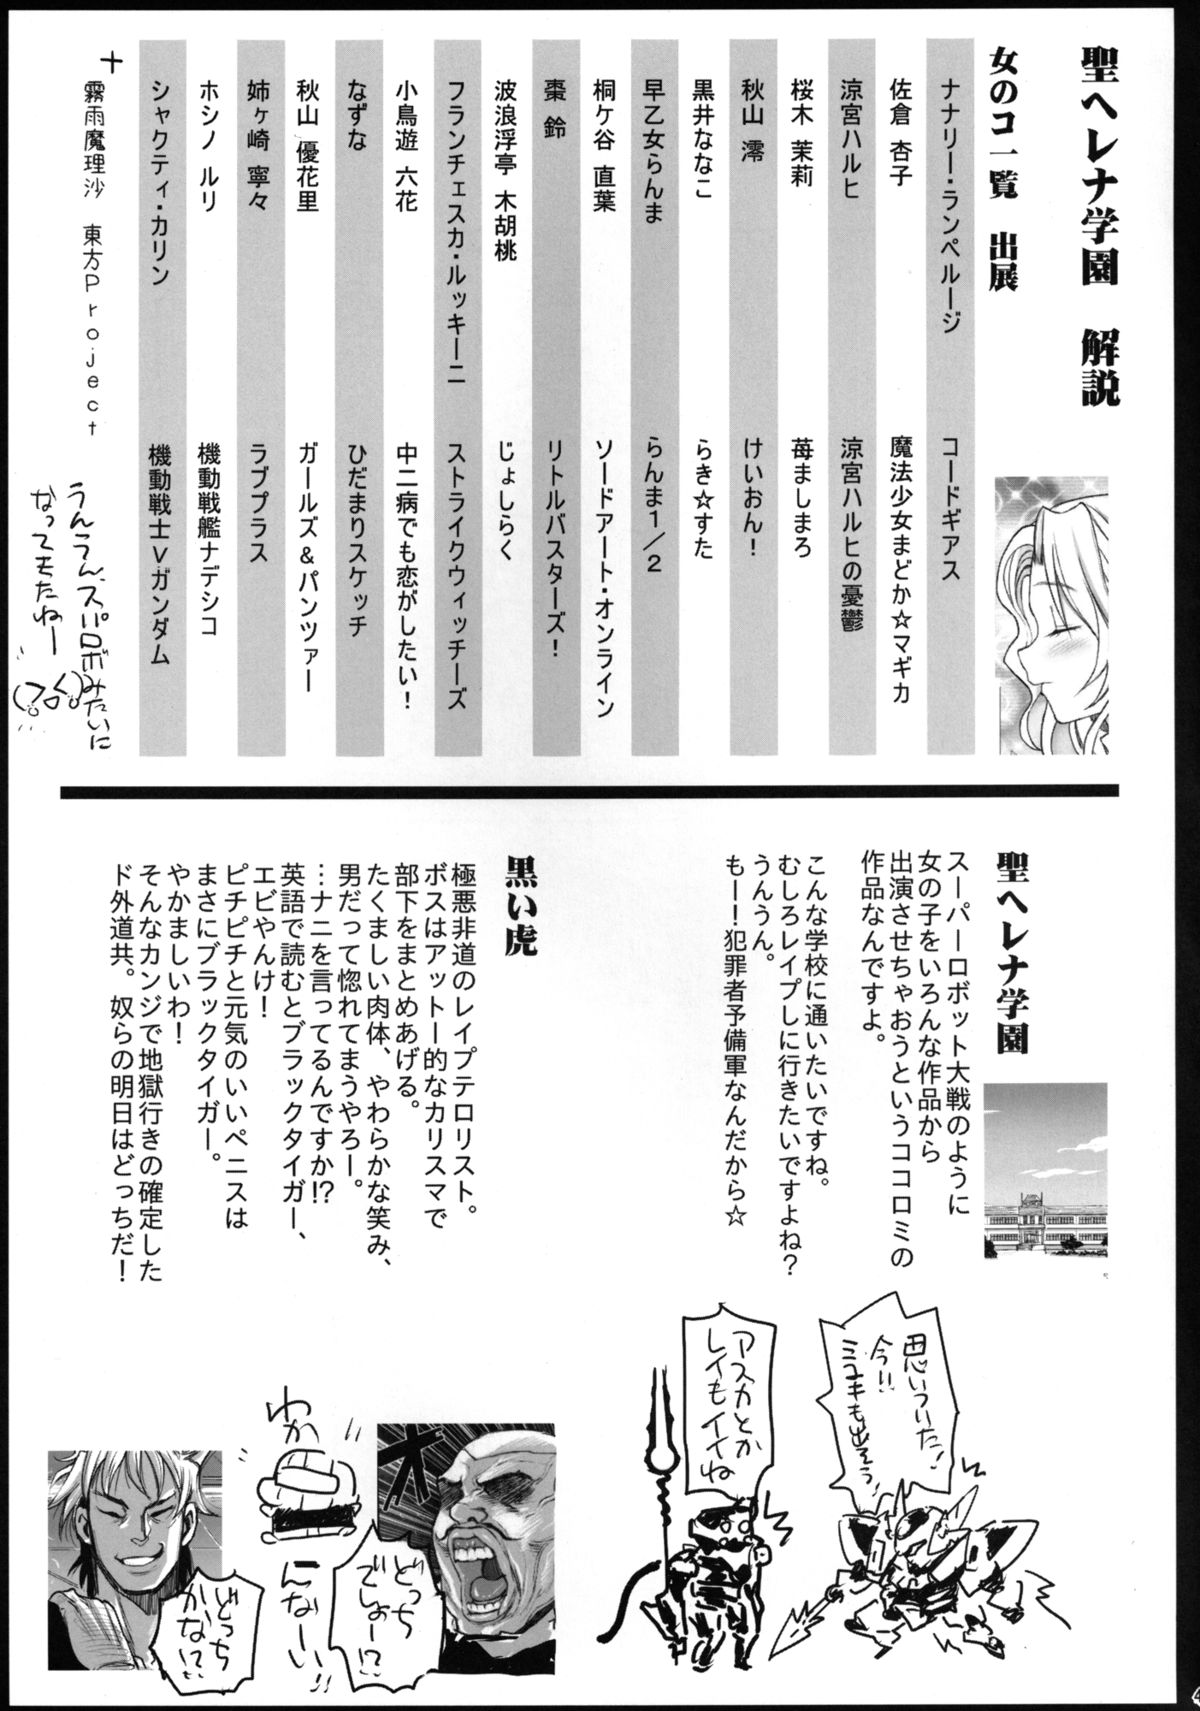 聖ヘレナ学園　解説
女のコ一覧　出展
ナナリー・ランペルージ　コードギアス
佐倉 杏子　魔法少女まどか☆マギカ
涼宮ハルヒ　涼宮ハルヒの憂鬱
桜木 茉莉　苺ましまろ
秋山 澪　けいおん！
黒井ななこ　らき☆すた
早乙女らんま　らんま１／２
桐ケ谷 直葉　ソードアート・オンライン
棗 鈴　リトルバスターズ！
波浪浮亭 木胡桃　じょしらく
フランチェスカ・ルッキーニ　ストライクウィッチーズ
小鳥遊 六花　中二病でも恋がしたい！
なずな　ひだまりスケッチ
秋山 優花里　ガールズ＆パンツァー
姉ヶ崎 寧々　ラブプラス
ホシノ ルリ　機動戦艦ナデシコ
シャクティ・カリン　機動戦士Ｖガンダム
＋
霧雨魔理沙　東方Project
うんうん、スパロボみたいに
なってきたねー
聖ヘレナ学園
スーパーロボット大戦のように
女の子をいろんな作品から
出演させちゃおうというココロミの
作品なんですよ。
こんな学校に通いたいですね。
むしろレイプしに行きたいですよね？
うんうん。
もー！犯罪者予備軍なんだから☆
思いついた！
今！！
ミユキも出そう
アスカとか
レイもイイね
黒い虎
極悪非道のレイプテロリスト。
ボスはアットー的なカリスマで
部下をまとめあげる。
たくましい肉体、やわらかな笑み、
男だって惚れてまうやろー。
…ナニを言ってるんですか!?
英語で読むとブラックタイガー、
エビやんけ！
ピチピチと元気のいいペニスは
まさにブラックタイガー。
やかましいわ！
そんなカンジで地獄行きの確定した
ド外道共。奴らの明日はどっちだ！
どっち
でしょー!?
わか
になーい!!
どっち
かな!?